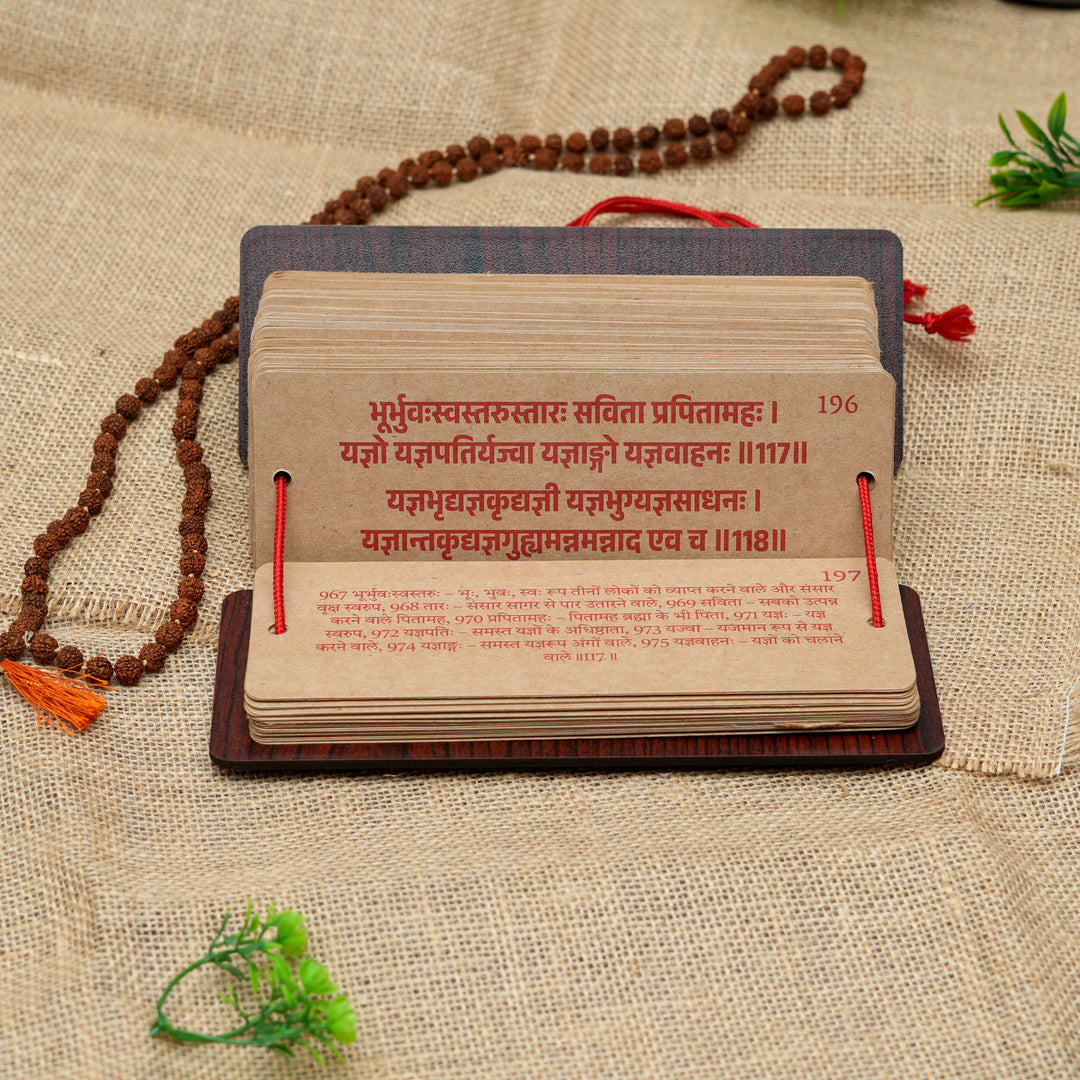 196
भूर्भुवःस्वस्तरुस्तारः सविता प्रपितामहः ।
यज्ञो यज्ञपतिर्यज्वा यज्ञाङ्गो यज्ञवाहनः ॥117॥
यज्ञभृद्यज्ञकृद्यज्ञी यज्ञभुग्यज्ञसाधनः ।
यज्ञान्तकृद्यज्ञगुह्यमन्नमन्नाद एव च ॥118॥
197
967 भूर्भुवःस्वस्तरुः – भूः, भुवः, स्वः रूप तीनों लोकों को व्याप्त करने वाले और संसार
वृक्ष स्वरुप, 968 तारः – संसार सागर से पार उतारने वाले, 969 सविता – सबको उत्पन्न
करने वाले पितामह, 970 प्रपितामहः – पितामह ब्रह्मा के भी पिता, 971 यज्ञः – यज्ञ
स्वरुप, 972 यज्ञपतिः – समस्त यज्ञों के अधिष्ठाता, 973 यज्वा – यजमान रूप से यज्ञ
करने वाले, 974 यज्ञाङ्गः – समस्त यज्ञरूप अंगों वाले, 975 यज्ञवाहनः – यज्ञों को चलाने
वाले ॥117॥